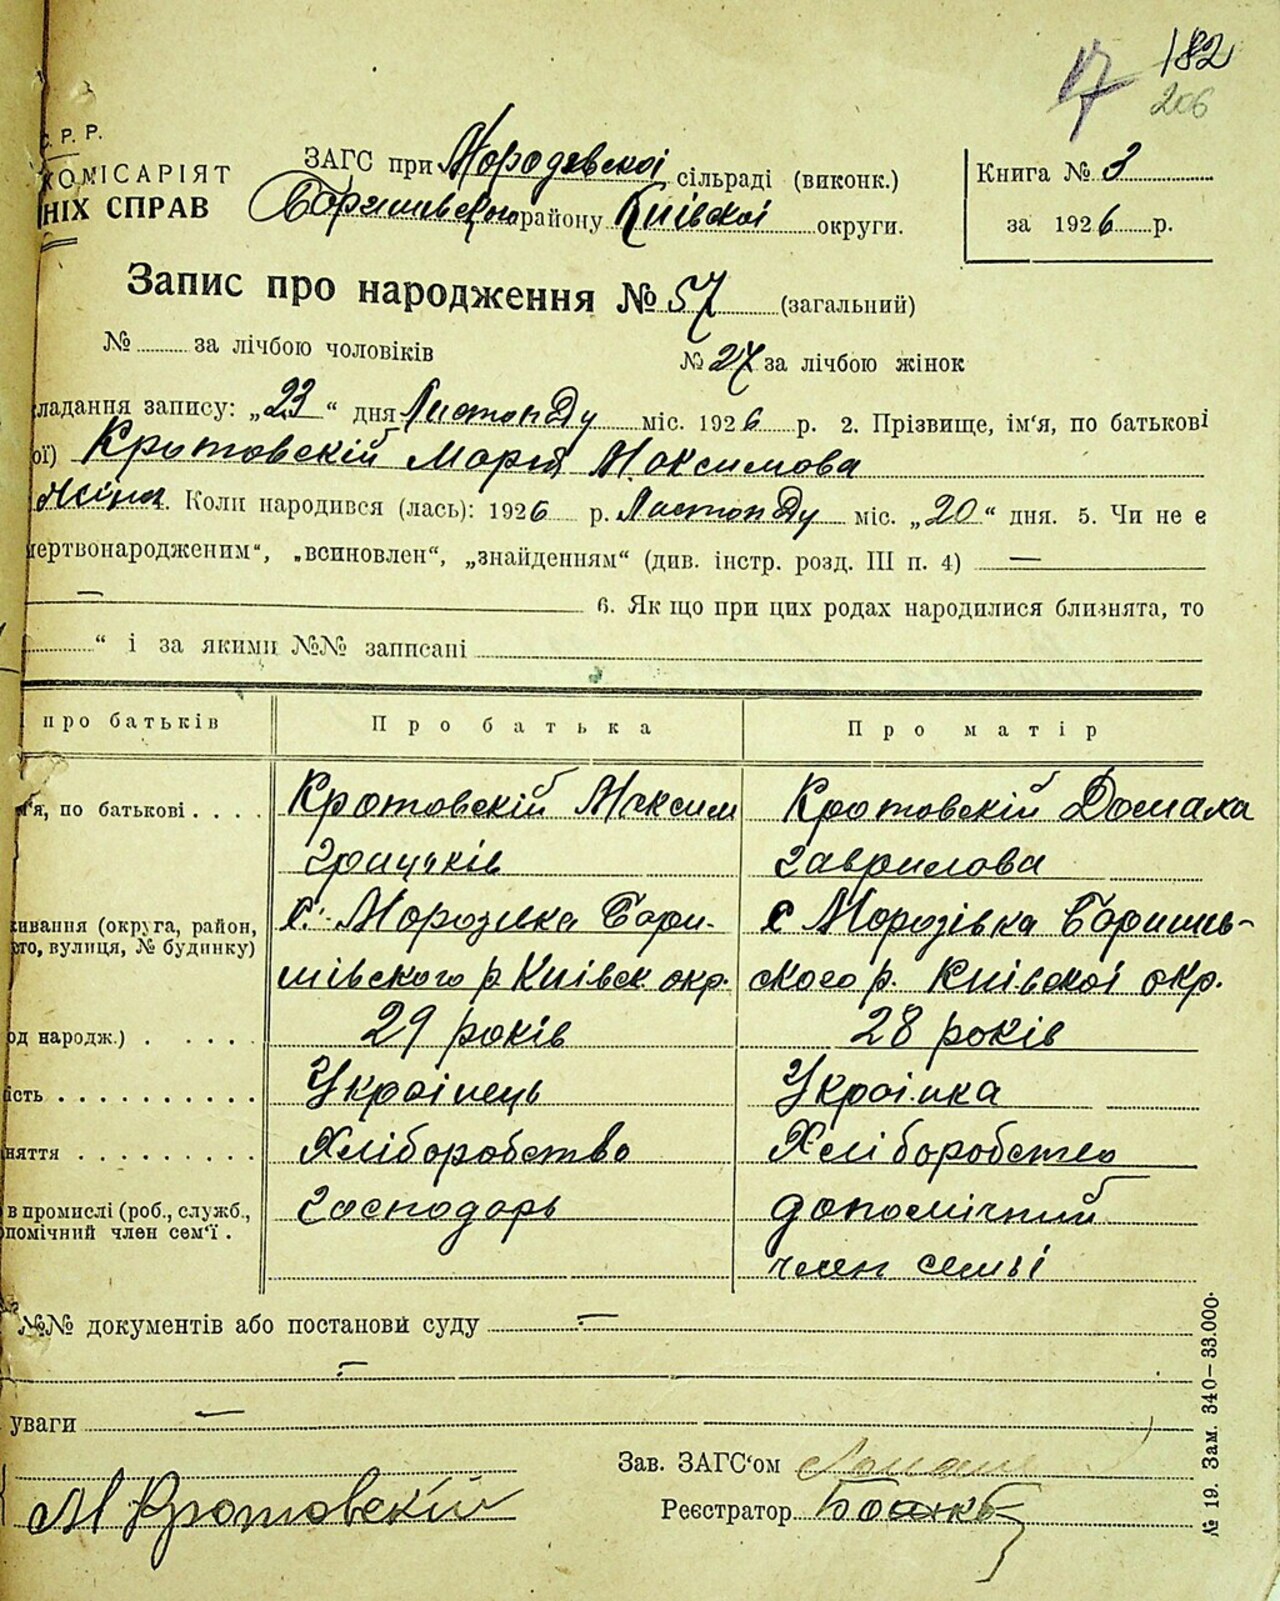 17 182
206
С. Р. Р.
КОМІСАРІЯТ
НІХ СПРАВ
ЗАГС при Морозівскоі сільраді (виконк.)
Боришівського району Київскоі округи.
Книга № 3
за 1926 р.
Запис про народження № 57 (загальний)
№ за лічбою чоловіків № 27 за лічбою жінок
кладання запису: „23“ дня Листопаду міс. 1926 р. 2. Прізвище, ім'я, по батькові
ої) Кротовскій Марія Максимова
жінка. Коли народився (лась): 1926 р. Листопаду міс. „20“ дня. 5. Чи не є
мертвонародженим“, „всиновлен“, „знайденням“ (див. інстр. розд. III п. 4) —
— 6. Як що при цих родах народилися близнята, то
“ і за якими №№ записані
і про батьків Про батька Про матір
м'я, по батькові . . . . Кротовскій Максим Кротовскій Домаха
Грицьків Гаврилова
живання (округа, район, с. Морозівка Бори- с Морозівка Боришь-
то, вулиця, № будинку)
шівского р. Київск окр. ского р. Київскоі окр.
од народж.) . . . . . 29 років 28 років
ість . . . . . . . . . . Украінець Украінка
няття . . . . . . . . . Хліборобство Хліборобство
в промислі (роб., служб., Господарь допомічний
помічний член сем'ї . член семьі
№№ документів або постанови суду —
—
уваги —
Зав. ЗАГС'ом
М Кротовскій Реєстратор
№ 19. Зам. 340—33.000.